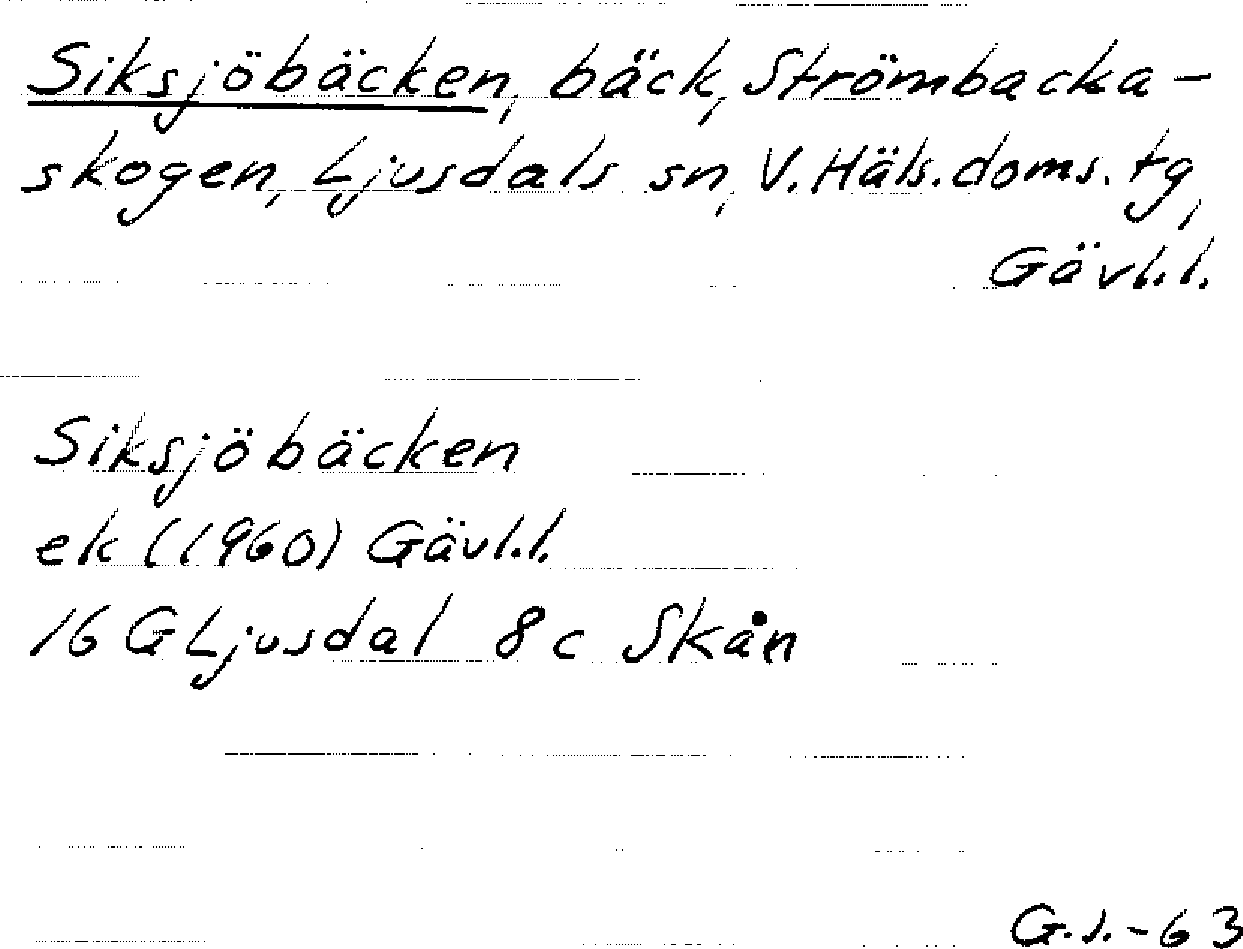 Siksjöbäcken, bäck, Strömbacka-
skogen, Ljusdals sn, V. Häls. doms. tg,
Gävl.l.
Siksjöbäcken
ek (1960) Gävl.l.
16 G Ljusdal 8 c Skån
G.J.-63